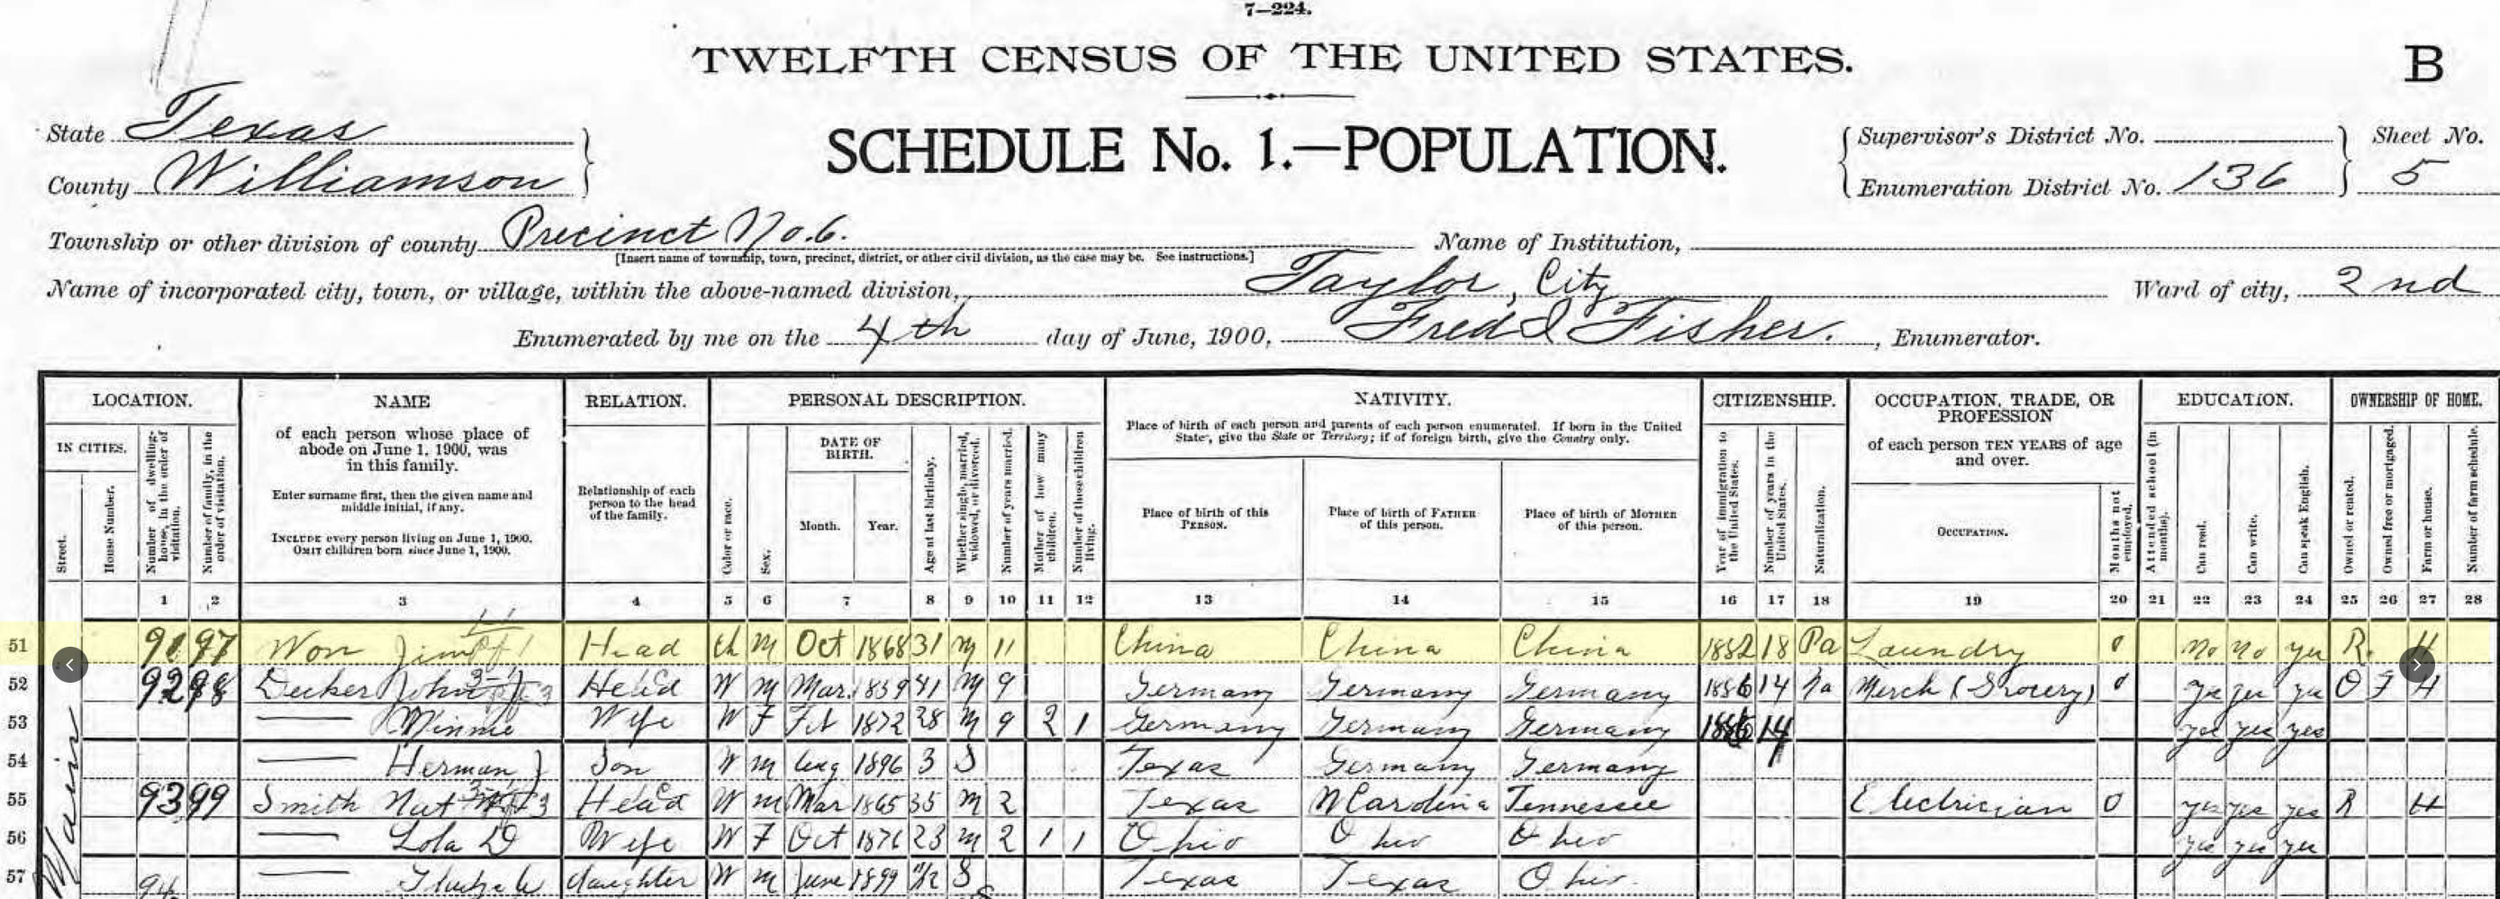 7—224.
TWELFTH CENSUS OF THE UNITED STATES.
B
State Texas
County Williamson
SCHEDULE No. 1.—POPULATION.
Supervisor's District No.
Enumeration District No. 136
Sheet No.
5
Township or other division of county Precinct No. 6.
Name of Institution,
[Insert name of township, town, precinct, district, or other civil division, as the case may be. See instructions.]
Name of incorporated city, town, or village, within the above-named division, Taylor, City
Ward of city, 2nd
Enumerated by me on the 4th day of June, 1900, Fred Fisher., Enumerator.
LOCATION.
IN CITIES.
Street.
House Number.
Number of dwelling-house, in the order of visitation.
Number of family, in the order of visitation.
NAME
of each person whose place of
abode on June 1, 1900, was
in this family.
Enter surname first, then the given name and
middle initial, if any.
INCLUDE every person living on June 1, 1900.
OMIT children born since June 1, 1900.
RELATION.
Relationship of each
person to the head
of the family.
PERSONAL DESCRIPTION.
Color or race.
Sex.
DATE OF
BIRTH.
Month.
Year.
Age at last birthday.
Whether single, married, widowed, or divorced.
Number of years married.
Mother of how many children.
Number of these children living.
NATIVITY.
Place of birth of each person and parents of each person enumerated. If born in the United
States, give the State or Territory; if of foreign birth, give the Country only.
Place of birth of this
PERSON.
Place of birth of FATHER
of this person.
Place of birth of MOTHER
of this person.
CITIZENSHIP.
Year of immigration to the United States.
Number of years in the United States.
Naturalization.
OCCUPATION, TRADE, OR
PROFESSION
of each person TEN YEARS of age
and over.
OCCUPATION.
Months not employed.
EDUCATION.
Attended school (in months).
Can read.
Can write.
Can speak English.
OWNERSHIP OF HOME.
Owned or rented.
Owned free or mortgaged.
Farm or house.
Number of farm schedule.
1 2 3 4 5 6 7 8 9 10 11 12 13 14 15 16 17 18 19 20 21 22 23 24 25 26 27 28
Main
51 91 97 Won Jim Head Ch M Oct 1868 31 M 11 China China China 1882 18 Pa Laundry 0 No No yes R. H
52 92 98 Decker John Head W M Mar. 1859 41 M 9 Germany Germany Germany 1886 14 Na Merch (Grocery) 0 yes yes yes O F H
53 Minnie Wife W F Feb 1872 28 M 9 2 1 Germany Germany Germany 1886 14 yes yes yes
54 Herman Son W M Aug 1896 3 S Texas Germany Germany
55 93 99 Smith Nat Head W M Mar 1865 35 M 2 Texas N Carolina Tennessee Electrician 0 yes yes yes R H
56 Lola D Wife W F Oct 1876 23 M 2 1 1 Ohio Ohio Ohio yes yes yes
57 daughter W M June 1899 S Texas Texas Ohio
94